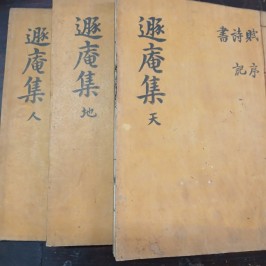 賦詩書
序記
遯庵集 天
遯庵集 地
遯庵集 人